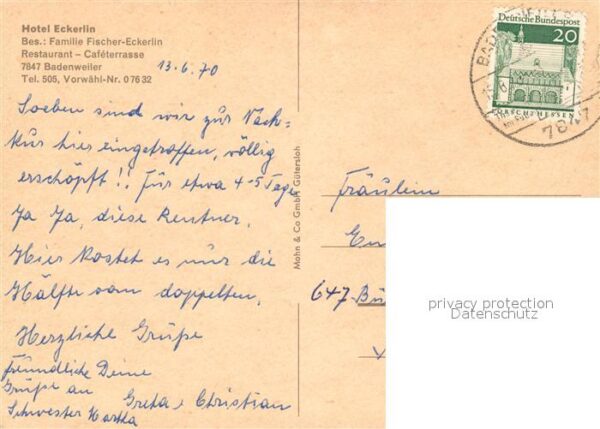 Hotel Eckerlin
Bes.: Familie Fischer-Eckerlin
Restaurant - Caféterrasse
7847 Badenweiler
Tel. 505, Vorwähl-Nr. 07632
13.6.70
Soeben sind wir zur Nach=
kur hier eingetroffen, völlig
erschöpft!! Für etwa 4-5 Tage
Ja Ja, diese Rentner.
Hier kostet es nur die
Hälfte vom doppelten.
Herzliche Grüße
Freundliche Deine
Grüße an Greta + Christian
Schwester Hertha
Mohn & Co GmbH Gütersloh
Deutsche Bundespost
20
LORSCH/HESSEN
7847
Fräulein
647 Bü
privacy protection
Datenschutz